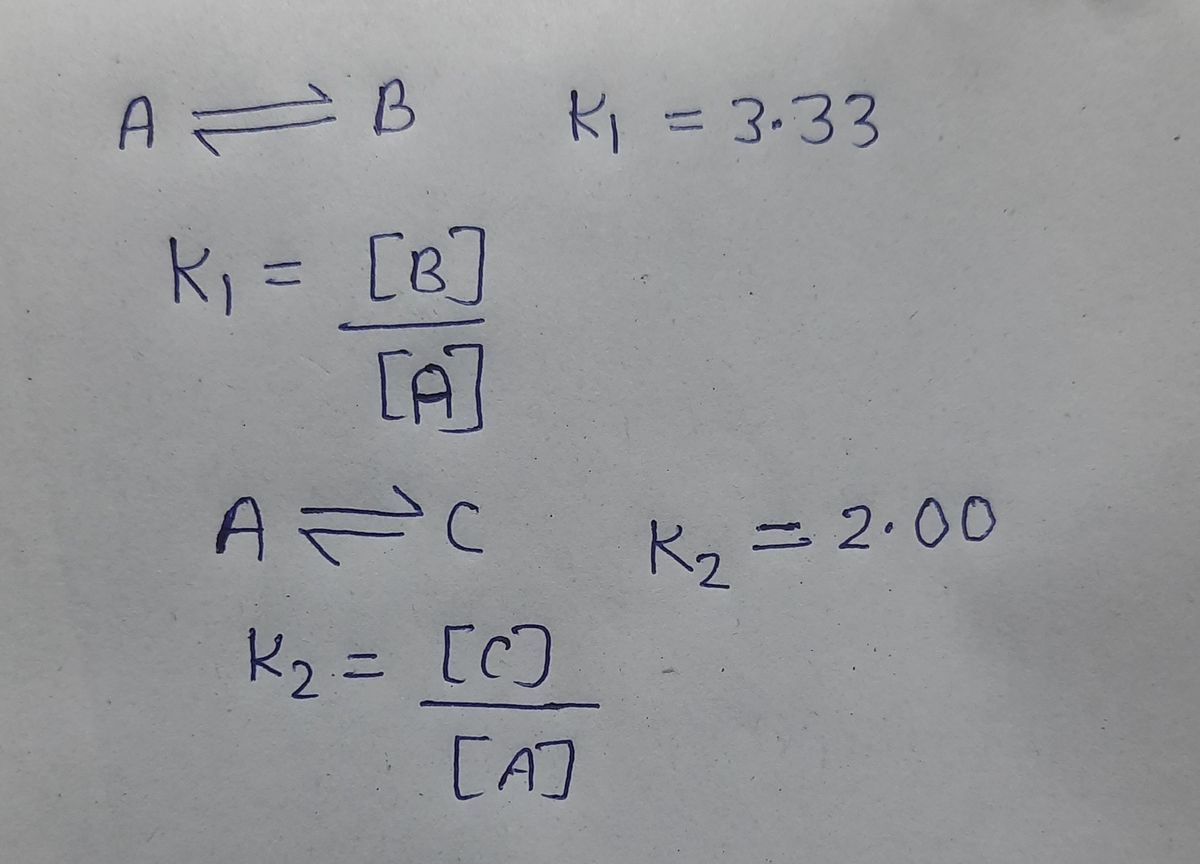 A ⇌ B K₁ = 3.33
K₁ = [B]
[A]
A ⇌ C K₂ = 2.00
K₂ = [C]
[A]